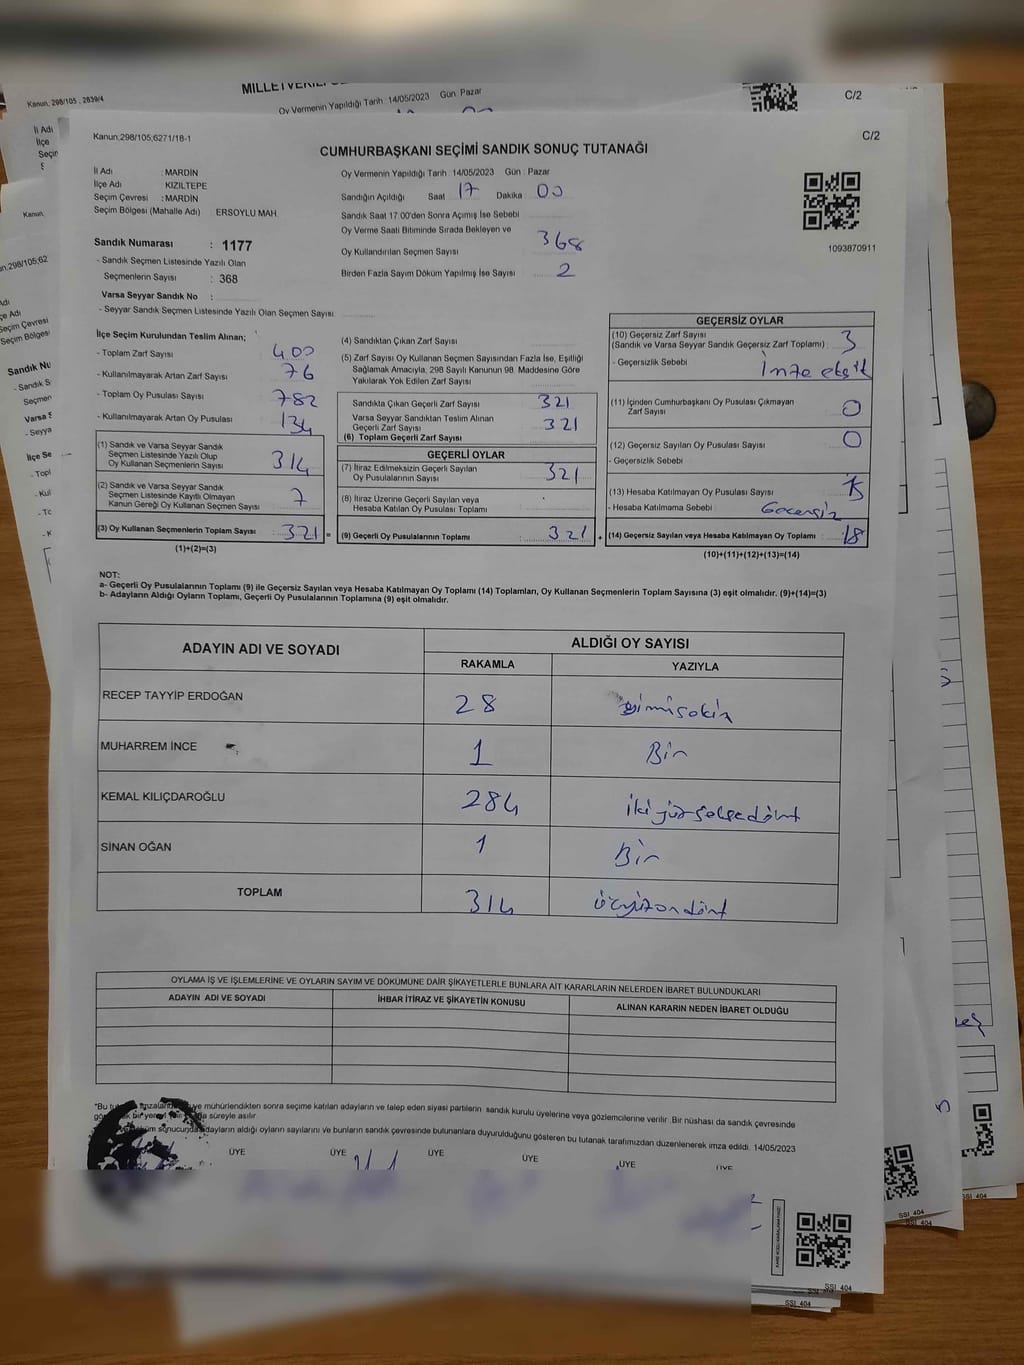 MILLETVEKİLİ
Kanun, 298/105 ; 2839/4
Oy Vermenin Yapıldığı Tarih 14/05/2023 Gün Pazar
C/2
Kanun;298/105;6271/18-1
C/2
CUMHURBAŞKANI SEÇİMİ SANDIK SONUÇ TUTANAĞI
İl Adı : MARDİN
İlçe Adı : KIZILTEPE
Seçim Çevresi : MARDİN
Seçim Bölgesi (Mahalle Adı) : ERSOYLU MAH.
Oy Vermenin Yapıldığı Tarih 14/05/2023 Gün : Pazar
Sandığın Açıldığı Saat 17 Dakika 00
Sandık Saat 17:00'den Sonra Açımış İse Sebebi
Oy Verme Saati Bitiminde Sırada Bekleyen ve
Oy Kullandırılan Seçmen Sayısı 368
Birden Fazla Sayım Döküm Yapılmış İse Sayısı 2
1093870911
Sandık Numarası : 1177
- Sandık Seçmen Listesinde Yazılı Olan
Seçmenlerin Sayısı : 368
Varsa Seyyar Sandık No :
- Seyyar Sandık Seçmen Listesinde Yazılı Olan Seçmen Sayısı:
İlçe Seçim Kurulundan Teslim Alınan;
- Toplam Zarf Sayısı 400
- Kullanılmayarak Artan Zarf Sayısı 76
- Toplam Oy Pusulası Sayısı 782
- Kullanılmayarak Artan Oy Pusulası 134
(1) Sandık ve Varsa Seyyar Sandık
Seçmen Listesinde Yazılı Olup
Oy Kullanan Seçmenlerin Sayısı 314
(2) Sandık ve Varsa Seyyar Sandık
Seçmen Listesinde Kayıtlı Olmayan
Kanun Gereği Oy Kullanan Seçmen Sayısı 7
(3) Oy Kullanan Seçmenlerin Toplam Sayısı 321 =
(1)+(2)=(3)
(4) Sandıktan Çıkan Zarf Sayısı
(5) Zarf Sayısı Oy Kullanan Seçmen Sayısından Fazla İse, Eşitliği
Sağlamak Amacıyla, 298 Sayılı Kanunun 98. Maddesine Göre
Yakılarak Yok Edilen Zarf Sayısı
Sandıkta Çıkan Geçerli Zarf Sayısı 321
Varsa Seyyar Sandıktan Teslim Alınan
Geçerli Zarf Sayısı 321
(6) Toplam Geçerli Zarf Sayısı
GEÇERLİ OYLAR
(7) İtiraz Edilmeksizin Geçerli Sayılan
Oy Pusulasının Sayısı 321
(8) İtiraz Üzerine Geçerli Sayılan veya
Hesaba Katılan Oy Pusulası Toplamı
(9) Geçerli Oy Pusulalarının Toplamı 321 +
GEÇERSİZ OYLAR
(10) Geçersiz Zarf Sayısı
(Sandık ve Varsa Seyyar Sandık Geçersiz Zarf Toplamı) : 3
- Geçersizlik Sebebi İmza eksik
(11) İçinden Cumhurbaşkanı Oy Pusulası Çıkmayan
Zarf Sayısı 0
(12) Geçersiz Sayılan Oy Pusulası Sayısı 0
- Geçersizlik Sebebi
(13) Hesaba Katılmayan Oy Pusulası Sayısı 15
- Hesaba Katılmama Sebebi Geçersiz
(14) Geçersiz Sayılan veya Hesaba Katılmayan Oy Toplamı : 18
(10)+(11)+(12)+(13)=(14)
NOT:
a- Geçerli Oy Pusulalarının Toplamı (9) ile Geçersiz Sayılan veya Hesaba Katılmayan Oy Toplamı (14) Toplamları, Oy Kullanan Seçmenlerin Toplam Sayısına (3) eşit olmalıdır. (9)+(14)=(3)
b- Adayların Aldığı Oyların Toplamı, Geçerli Oy Pusulalarının Toplamına (9) eşit olmalıdır.
ADAYIN ADI VE SOYADI ALDIĞI OY SAYISI
RAKAMLA YAZIYLA
RECEP TAYYİP ERDOĞAN 28 yirmisekiz
MUHARREM İNCE 1 Bir
KEMAL KILIÇDAROĞLU 284 ikiyüzseksendört
SİNAN OĞAN 1 Bir
TOPLAM 314 üçyüzondört
OYLAMA İŞ VE İŞLEMLERİNE VE OYLARIN SAYIM VE DÖKÜMÜNE DAİR ŞİKAYETLERLE BUNLARA AİT KARARLARIN NELERDEN İBARET BULUNDUKLARI
ADAYIN ADI VE SOYADI İHBAR İTİRAZ VE ŞİKAYETİN KONUSU ALINAN KARARIN NEDEN İBARET OLDUĞU
"Bu ve mühürlendikten sonra seçime katılan adayların ve talep eden siyasi partilerin sandık kurulu üyelerine veya gözlemcilerine verilir. Bir nüshası da sandık çevresinde
bir süreyle asılır.
sonucunda adayların aldığı oyların sayılarını ve bunların sandık çevresinde bulunanlara duyurulduğunu gösteren bu tutanak tarafımızdan düzenlenerek imza edildi. 14/05/2023
ÜYE ÜYE ÜYE ÜYE ÜYE ÜYE
SSI_404
SSI_404
SSI_404
SSI_404
SSI_404